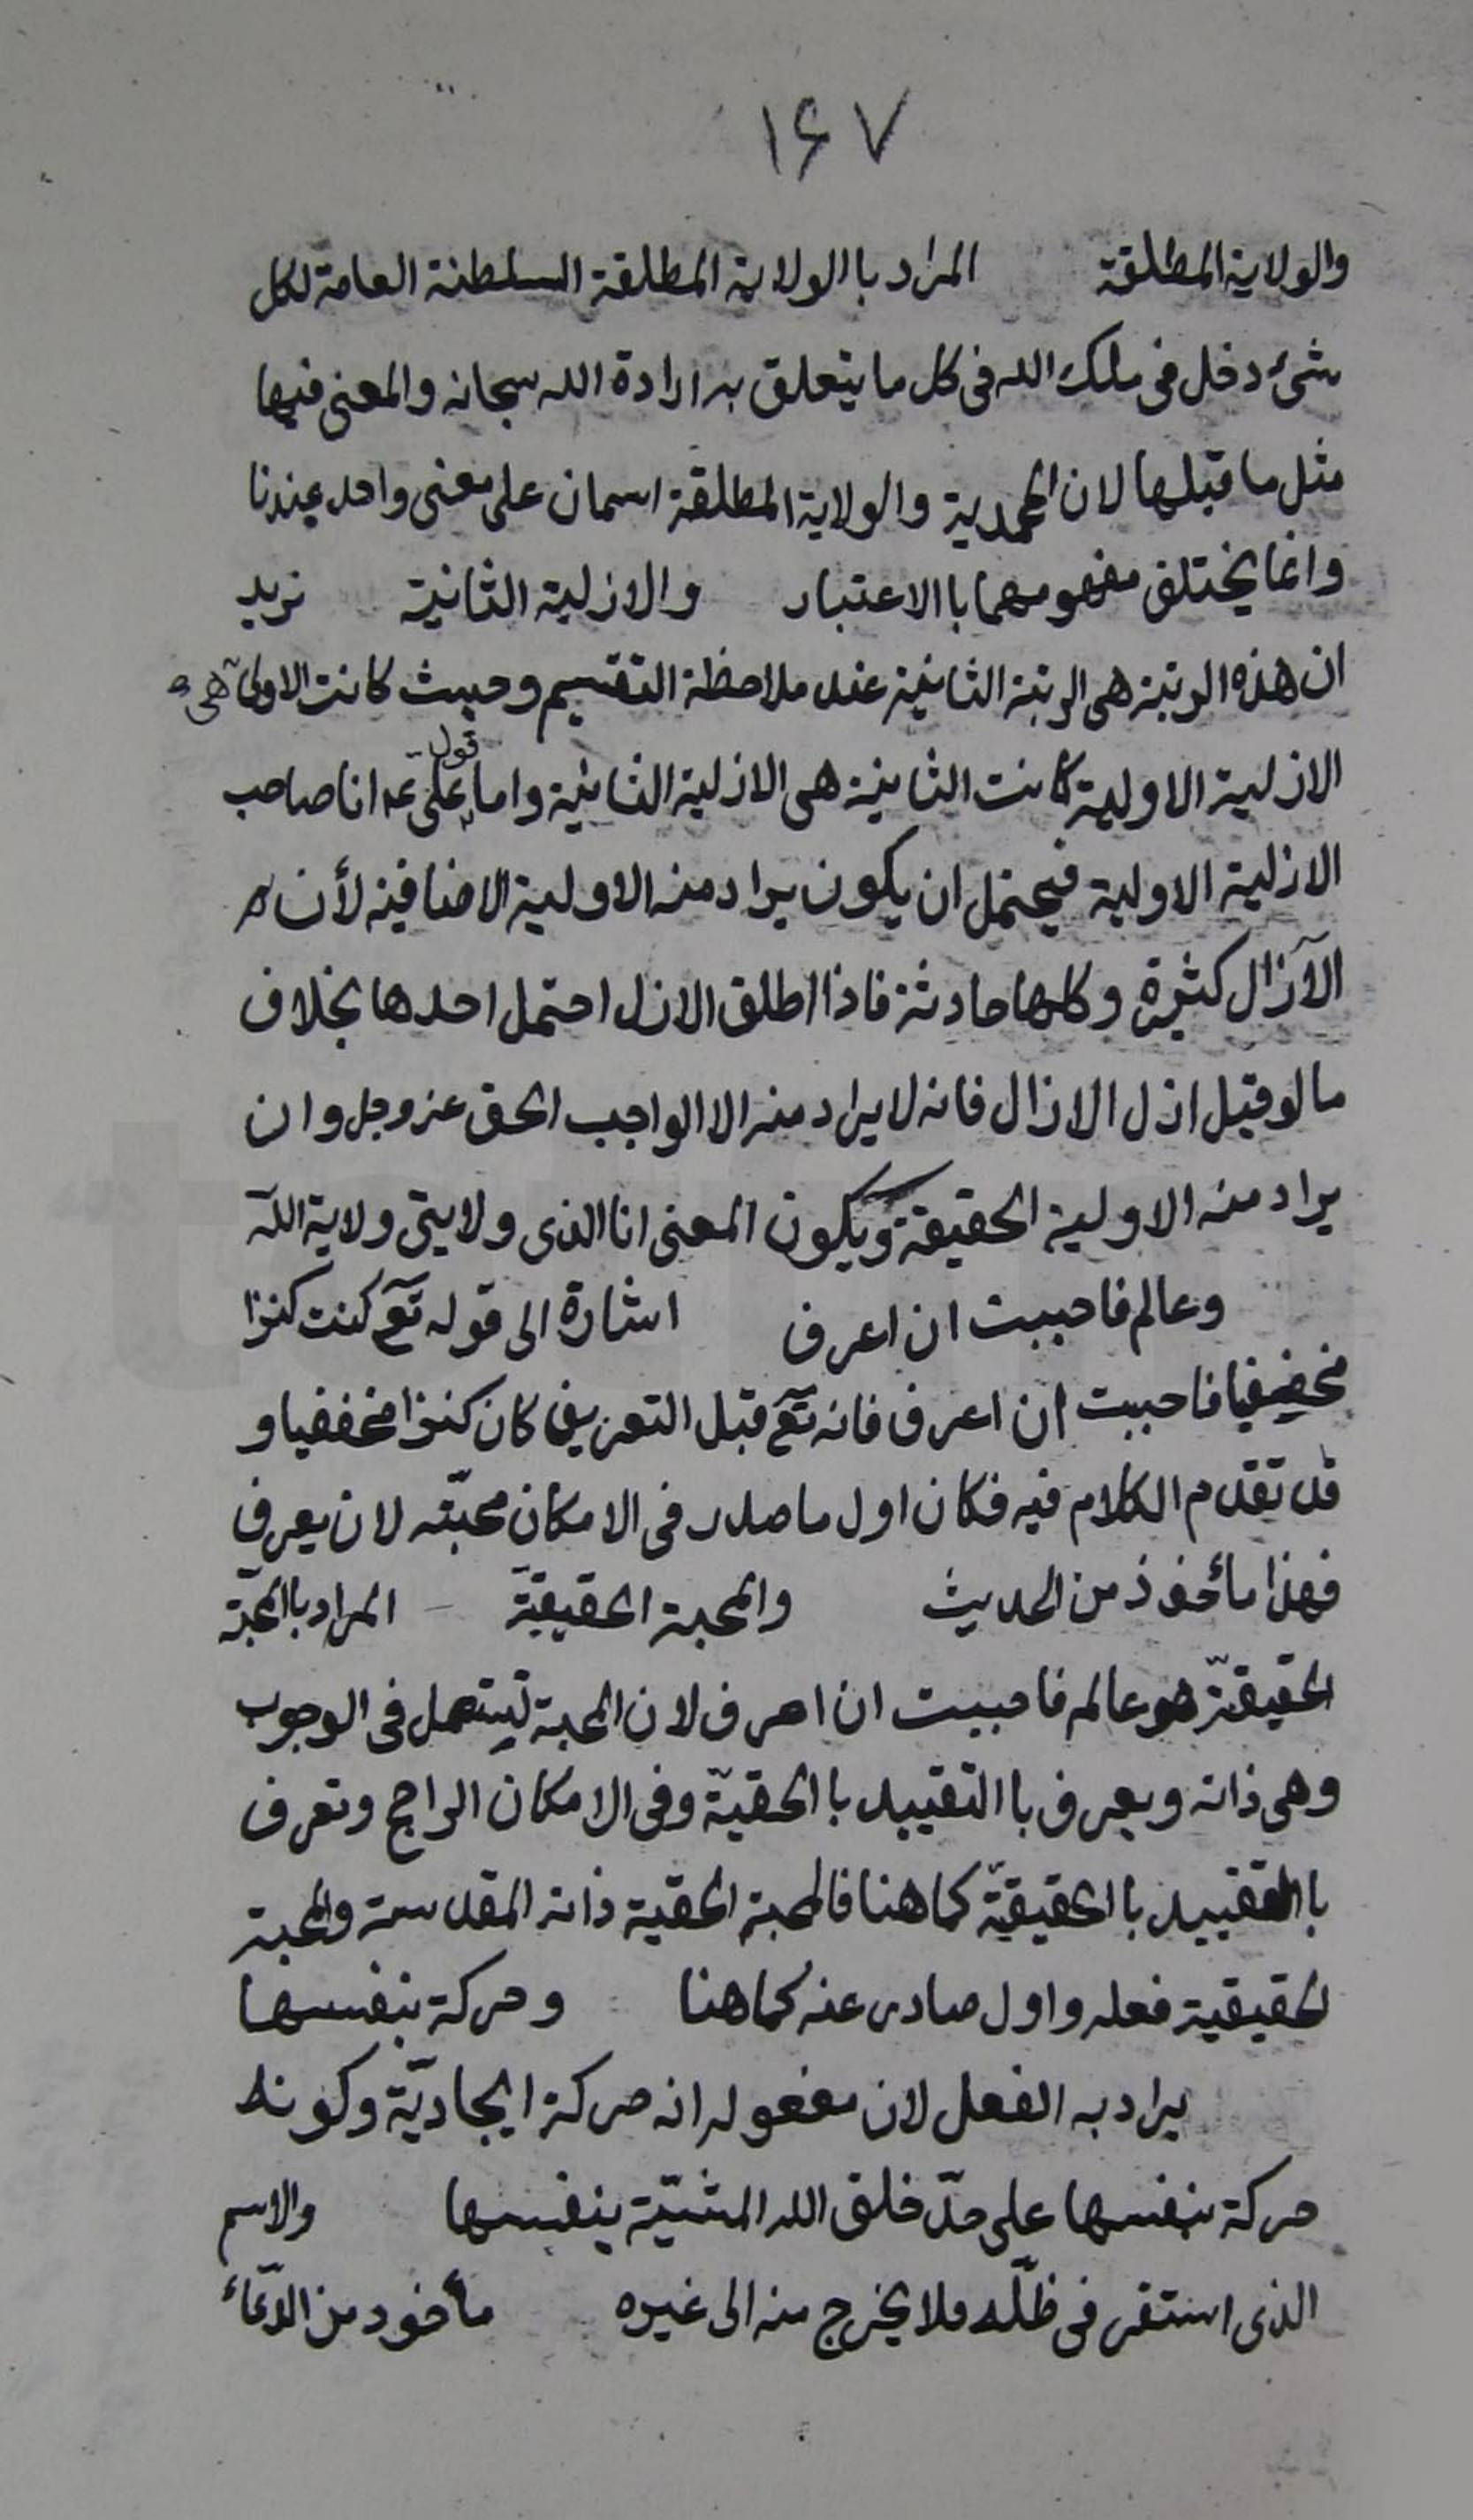 ۱۶۷
والولاية المطلقة المراد باالولاية المطلقة السلطنة العامة لكل
شئ دخل فى ملك الله فى كل ما يتعلق به ارادة الله سبحانه والمعنى فيها
مثل ما قبلها لان المحمدية والولاية المطلقة اسمان على معنى واحد عندنا
وانما يختلف مفهومهما باالاعتبار والازلية الثانية نريد
ان هذه الرتبة هى الرتبة الثانية عند ملاحظة التقسيم وحيث كانت الاولى هى
الازلية الاولية كانت الثانية هى الازلية الثانية واما قول على عم انا صاحب
الازلية الاولية فيحتمل ان يكون يراد منه الاولية الاضافية لأن
الآزال كثيرة وكلها حادثة فاذا اطلق الازل احتمل احدها بخلاف
ما لو قيل ازل الازال فانه لا يراد منه الا الواجب الحق عز وجل وان
يراد منه الاولية الحقيقة ويكون المعنى انا الذى ولايتى ولاية الله
وعالم فاحببت ان اعرف اشارة الى قوله تع كنت كنزا
مخفيا فاحببت ان اعرف فانه تع قبل التعريف كان كنزا مخففيا و
قد تقدم الكلام فيه فكان اول ما صدر فى الامكان محبّته لان يعرف
فهذا مأخوذ من الحديث والمحبة الحقيقيّة المراد باالمحبّة
الحقيقيّة هو عالم فاحببت ان اعرف لان المحبة تستعمل فى الوجوب
وهى ذاته ويعرف باالتقييد باالحقيّة وفى الامكان الراجح وتعرف
باالتقييد باالحقيقيّة كما هنا فالمحبة الحقية ذاته المقدسة والمحبة
الحقيقية فعله واول صادر عنه كما هنا وحركة بنفسها
يراد به الفعل لان مفعوله انه حركة ايجاديّة وكونه
حركة بنفسها على حدّ خلق الله المشيّة بنفسها والاسم
الذى استقر فى ظلّه فلا يخرج منه الى غيره مأخود من الدّعاء